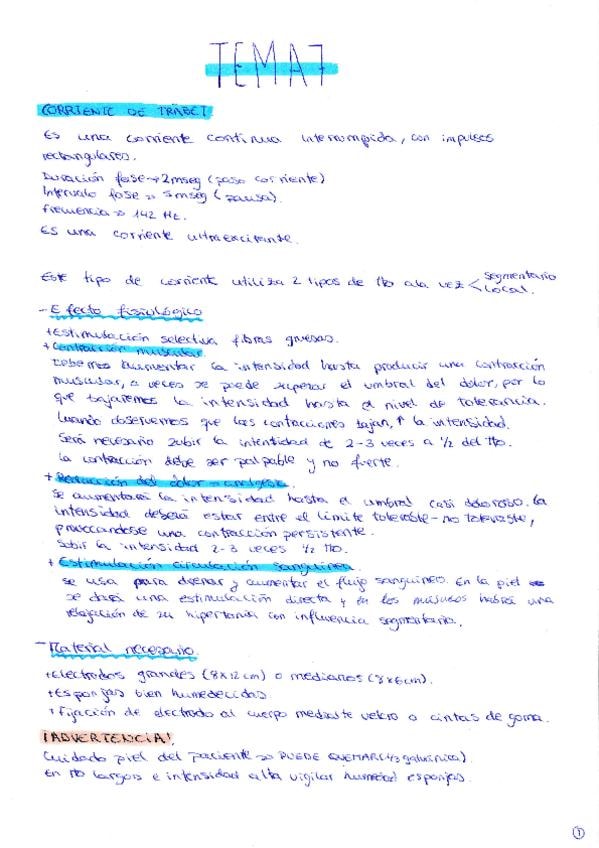 TEMA 7
CORRIENTE DE TRÄBERT
Es una corriente continua interrumpida, con impulsos
rectangulares.
Duración fase → 2mseg (paso corriente)
Intervalo fase → 5mseg (pausa).
Frecuencia → 142 Hz.
Es una corriente ultraexcitante.
Este tipo de corriente utiliza 2 tipos de tto a la vez < segmentario
local.
- Efecto fisiológico
+ Estimulación selectiva fibras gruesas.
+ Contracción muscular.
Debemos aumentar la intensidad hasta producir una contracción
muscular, a veces se puede superar el umbral del dolor, por lo
que bajaremos la intensidad hasta el nivel de tolerancia.
Cuando observemos que las contracciones bajan, ↑ la intensidad.
Será necesario subir la intentidad de 2-3 veces a ½ del tto.
La contracción debe ser palpable y no fuerte.
+ Reducción del dolor → analgesia.
Se aumentará la intensidad hasta el umbral casi doloroso. La
intensidad deberá estar entre el límite tolerable - no tolerable,
provocandose una contracción persistente.
Subir la intensidad 2-3 veces ½ tto.
+ Estimulación circulación sanguínea.
Se usa para drenar y aumentar el flujo sanguíneo. En la piel
se dará una estimulación directa y en los músculos habrá una
relajación de su hipertonía con influencia segmentaria.
- Material necesario.
+ Electrodos grandes (8x12cm) o medianos (8x6cm).
+ Esponjas bien humedecidas.
+ Fijación de electrodo al cuerpo mediante velcro o cintas de goma.
¡ADVERTENCIA!
Cuidado piel del paciente → PUEDE QUEMAR galvánica).
En tto largos e intensidad alta vigilar humedad esponjas.
1